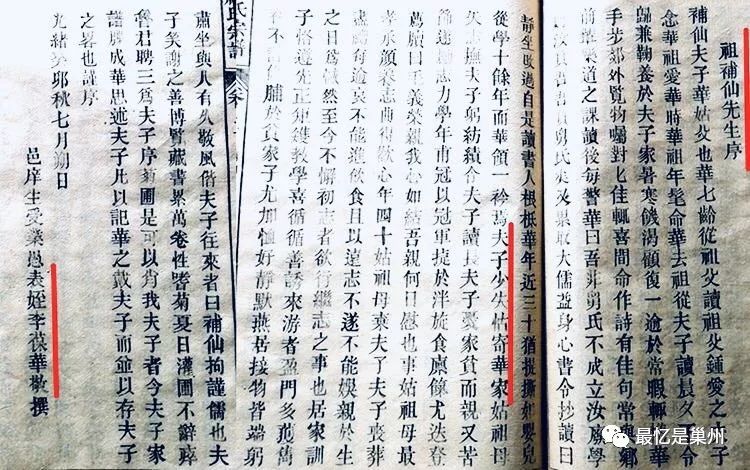 祖補仙先生序
補仙夫子華姑父也華七齡從祖父讀祖父鍾愛之夫子
念華祖愛華時華祖年髦命華去祖從夫子讀晨夕令
歸兼鞠養於夫子家暑寒饑渴顧復一逾於常暇輒
手步郊外覽物囑對比佳輒喜間命作詩有佳句常
前樂道之課讀後每警華曰吾非舅氏不成立汝學
舅氏果取大儒益身心書令抄讀曰
靜坐改過自是讀書人根柢華年近三十猶提撕如嬰兒
從學十餘年而華領一衿焉夫子少失怙寄華家姑祖母
矢志撫夫子躬紡績合夫子讀長夫子娶家貧而親又苦
節遂勵志力學年甫冠以冠軍掟於泮旋食廩餼尤迭登
薦牘曰毛義榮親我心如結吾親何日慰也事姑祖母最
孝承顏養志曲得歡心年四十姑祖母棄夫子夫子喪葬
盡禮每逾哀不能進飲食且以遠志不遂不能娛親於生
之日為憾然至今不懈初志者欲行繼志之事也居家訓
子恪遵先正矩鑊教學喜循循善誘來游者盈門多獲雋
脯於貧家子尤加恤好靜默燕居接物皆端躬
氏宗譜 卷
肅坐與人有久敬風偕夫子往來者曰補仙拘謹儒也夫
子笑謝之善博覽藏書累萬卷性嗜菊夏日灌圃不辭瘁
魯君聘三為夫子序菊圃是可以肖我夫子者今夫子家
譜將成華思述夫子凡以記華之戴夫子而並以存夫子
之畧也謹序
光緒癸卯秋七月朔日
邑庠生受業愚表姪李葆華敬撰
最忆是巢州